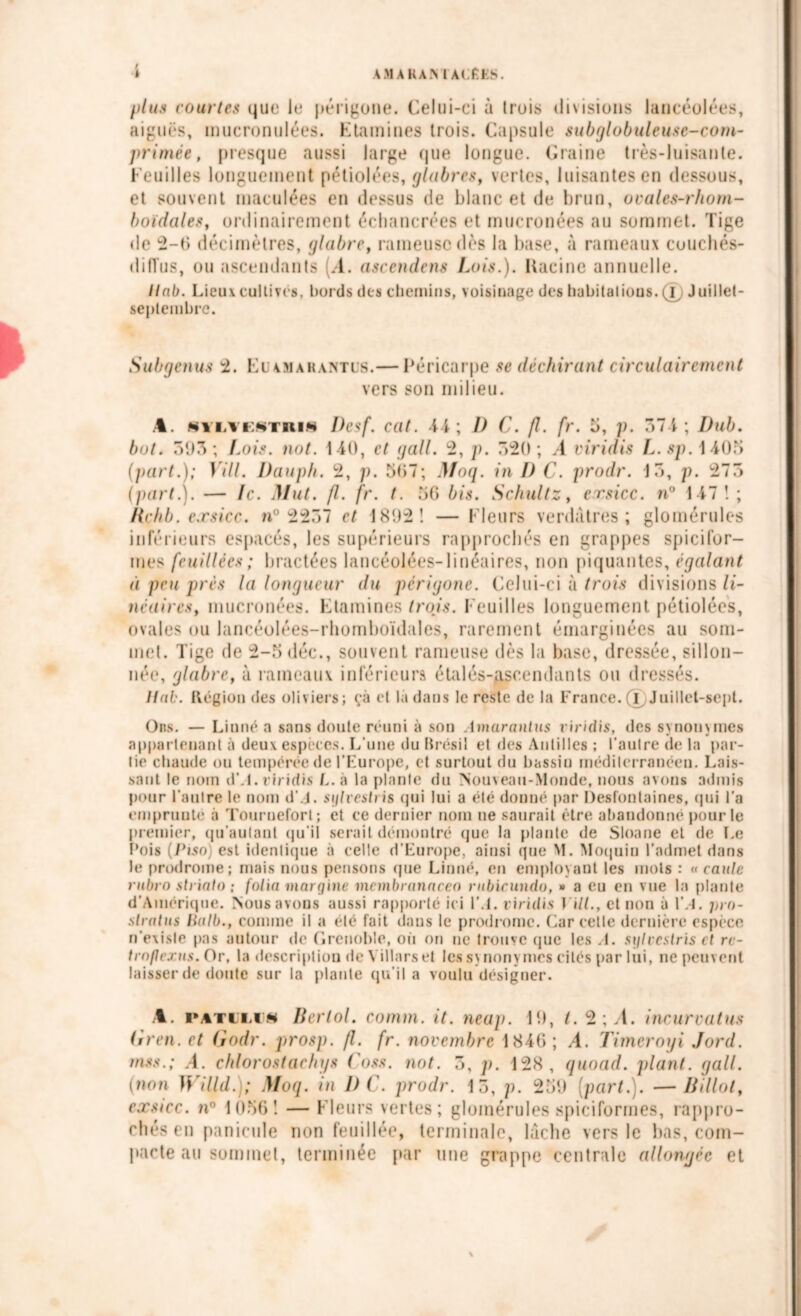 4 AMARANTACÉES.
plus courtes que le périgone. Celui-ci à trois divisions lancéolées,
aiguës, mucronulées. Etamines trois. Capsule subglobuleuse-com-
primée, presque aussi large que longue. Graine très-luisante.
Feuilles longuement pétiolées, glabres, vertes, luisantes en dessous,
et souvent maculées en dessus de blanc et de brun, ovales-rhom-
boïdales, ordinairement échancrées et mucronées au sommet. Tige
de 2-6 décimètres, glabre, rameuse dès la base, à rameaux couchés-
diffus, ou ascendants (A. ascendens Lois.). Racine annuelle.
Hab. Lieux cultivés, bords des chemins, voisinage des habitations. ① Juillet-
septembre.
Subgenus 2. EUAMARANTUS.— Péricarpe se déchirant circulairement
vers son milieu.
A. SYLVESTRIS Desf. cat. 44; D C. fl. fr. 5, p. 374; Dub.
bot. 393; Lois. not. 140, et gall. 2, p. 320; A viridis L. sp. 1405
(part.); Vill. Dauph. 2, p. 567; Moq. in D C. prodr. 13, p. 273
(part.). — Ic. Mut. fl. fr. t. 56 bis. Schultz, exsicc. n° 147!;
Rchb. exsicc. n° 2237 et 1892! — Fleurs verdâtres; glomérules
inférieurs espacés, les supérieurs rapprochés en grappes spicifor-
mes feuillées; bractées lancéolées-linéaires, non piquantes, égalant
à peu près la longueur du périgone. Celui-ci à trois divisions li-
néaires, mucronées. Etamines trois. Feuilles longuement pétiolées,
ovales ou lancéolées-rhomboïdales, rarement émarginées au som-
met. Tige de 2-5 déc., souvent rameuse dès la base, dressée, sillon-
née, glabre, à rameaux inférieurs étalés-ascendants ou dressés.
Hab. Région des oliviers; çà et là dans le reste de la France. ① Juillet-sept.
OBS. — Linné a sans doute réuni à son Amarantus viridis, des synonymes
appartenant à deux espèces. L'une du Brésil et des Antilles; l'autre de la par-
tie chaude ou tempérée de l'Europe, et surtout du bassin méditerranéen. Lais-
sant le nom d'A. viridis L. à la plante du Nouveau-Monde, nous avons admis
pour l'autre le nom d'A. sylvestris qui lui a été donné par Desfontaines, qui l'a
emprunté à Tournefort; et ce dernier nom ne saurait être abandonné pour le
premier, qu'autant qu'il serait démontré que la plante de Sloane et de Le
Pois (Piso) est identique à celle d'Europe, ainsi que M. Moquin l'admet dans
le prodrome; mais nous pensons que Linné, en employant les mots : « caule
rubro striato; folia margine membranaceo rubicundo, » a eu en vue la plante
d'Amérique. Nous avons aussi rapporté ici l'A. viridis Vill., et non à l'A. pro-
stratus Balb., comme il a été fait dans le prodrome. Car cette dernière espèce
n'existe pas autour de Grenoble, où on ne trouve que les A. sylvestris et re-
troflexus. Or, la description de Villars et les synonymes cités par lui, ne peuvent
laisser de doute sur la plante qu'il a voulu désigner.
A. PATULUS Bertol. comm. it. neap. 19, t. 2; A. incurvatus
Gren. et Godr. prosp. fl. fr. novembre 1846; A. Timeroyi Jord.
mss.; A. chlorostachys Coss. not. 3, p. 128, quoad. plant. gall.
(non Willd.); Moq. in D C. prodr. 13, p. 259 (part.). — Billot,
exsicc. n° 1056! — Fleurs vertes; glomérules spiciformes, rappro-
chés en panicule non feuillée, terminale, lâche vers le bas, com-
pacte au sommet, terminée par une grappe centrale allongée et